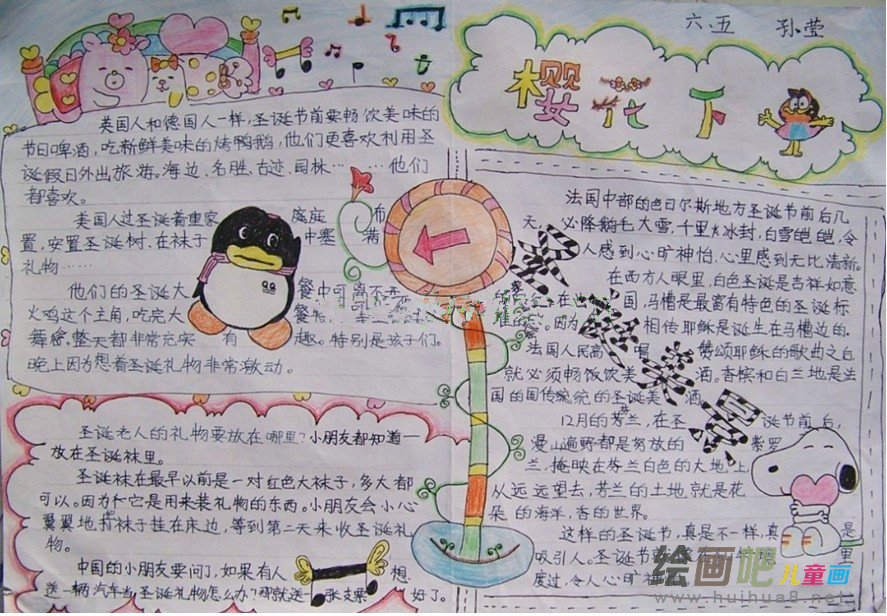 六.五 孙莹
樱花下
美国人和德国人一样,圣诞节前要畅饮美味的
节日啤酒,吃新鲜美味的烤鸭鹅,他们更喜欢利用圣
诞假日外出旅游.海边、名胜、古迹、园林……他们
都喜欢。
美国人过圣诞着重家庭庭布
置,安置圣诞树.在袜子中塞满
礼物……
他们的圣诞大餐中可
火鸡这个主角,吃完大餐
舞密.整天都非常充实有趣。特别是孩子们。
晚上因为想着圣诞礼物非常激动。
圣诞老人的礼物要放在哪里?小朋友都知道一
放在圣诞袜里。
圣诞袜在最早以前是一对红色大袜子,多大都
可以。因为它是用来装礼物的东西。小朋友会小心
翼翼地将袜子挂在床边,等到第二天来收圣诞礼
物。
中国的小朋友要问了,如果有人想
送一辆汽车当圣诞礼物怎么办?那就送张支票好了。
法国中部的色日尔斯地方圣诞节前后几
天,必降鹅毛大雪,千里冰封,白雪皑皑,令
人感到心旷神怡,心里感到无比清新。
在西方人眼里,白色圣诞是吉祥如意
在国,马槽是最富有特色的圣诞标
准的 因为相传耶稣是诞生在马槽边的.
法国人民高唱赞颂耶稣的歌曲之后
就必须畅饭饮美酒,香槟和白兰地是法
国的国传统的圣诞美酒
12月的芬兰,在圣诞节前后,
漫山遍野都是努放的紫罗
兰,掩映在芬兰白色的大地上
从远远望去,芬兰的土地就是花
朵的海洋,香的世界。
这样的圣诞节,真是不一样,真是
吸引人。圣诞节里
度过,令人心旷神
绘画吧儿童画
www.huihua8.net